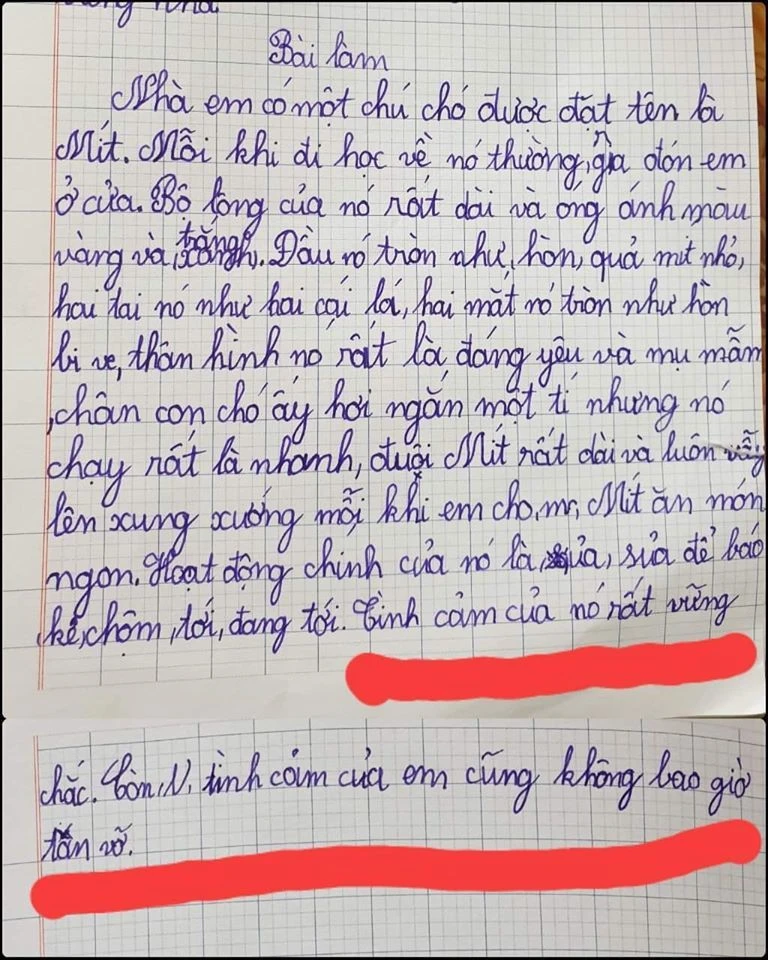 Bài làm
Nhà em có một chú chó được đặt tên là
Mít. Mỗi khi đi học về nó thường, ra đón em
ở cửa. Bộ lông của nó rất dài và óng ánh màu
vàng và trắng. Đầu nó tròn như, hòn, quả mít nhỏ,
hai tai nó như hai cái lá, hai mắt nó tròn như hòn
bi ve, thân hình nó rất là, đáng yêu và mụ mẫm
, chân con chó ấy hơi ngắn một tí nhưng nó
chạy rất là nhanh, đuôi Mít rất dài và luôn vẫy
lên xung xướng mỗi khi em cho, Mít ăn món
ngon. Hoạt động chính của nó là, sủa, sủa để báo
kẻ, chộm, tới, đang tới. Tình cảm của nó rất vững
chắc. Còn, tình cảm của em cũng không bao giờ
tan vỡ.